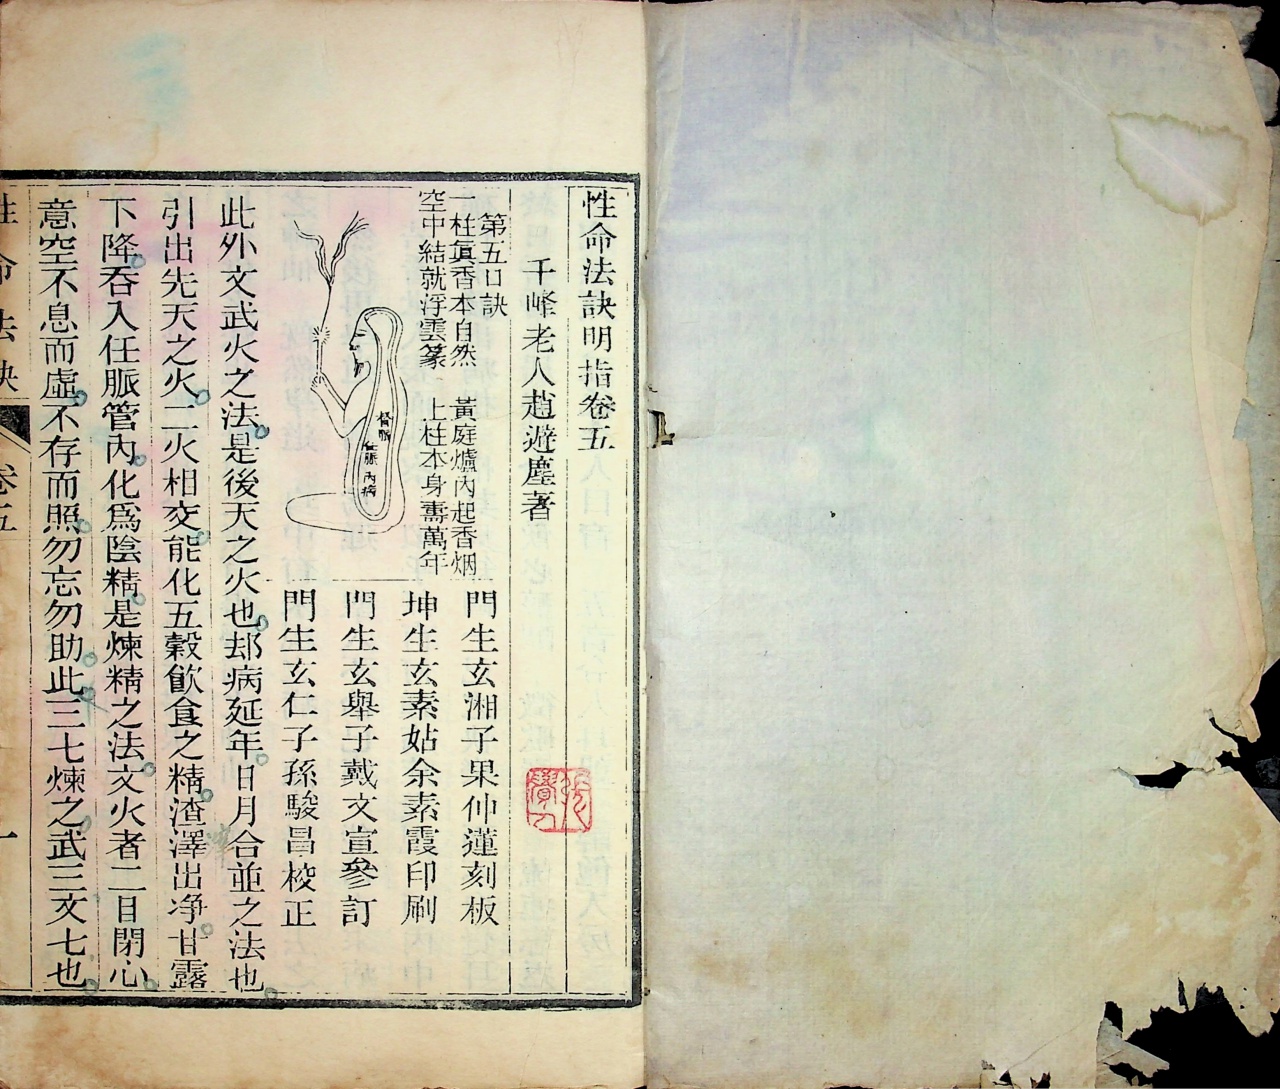 性命法訣明指卷五
千峰老人趙避塵著
第五口訣
一柱眞香本自然　黃庭爐內起香烟
空中結就浮雲篆　上柱本身壽萬年
督脈
任脈
內病
門生玄湘子果仲蓮刻板
坤生玄素姑余素霞印刷
門生玄舉子戴文宣參訂
門生玄仁子孫駿昌校正
此外文武火之法是後天之火也却病延年日月合並之法也
引出先天之火二火相交能化五穀飮食之精渣澤出净甘露
下降吞入任脈管內化爲陰精是煉精之法文火者二目閉心
意空不息而虛不存而照勿忘勿助此三七煉之武三文七也
性命法訣
卷五
一